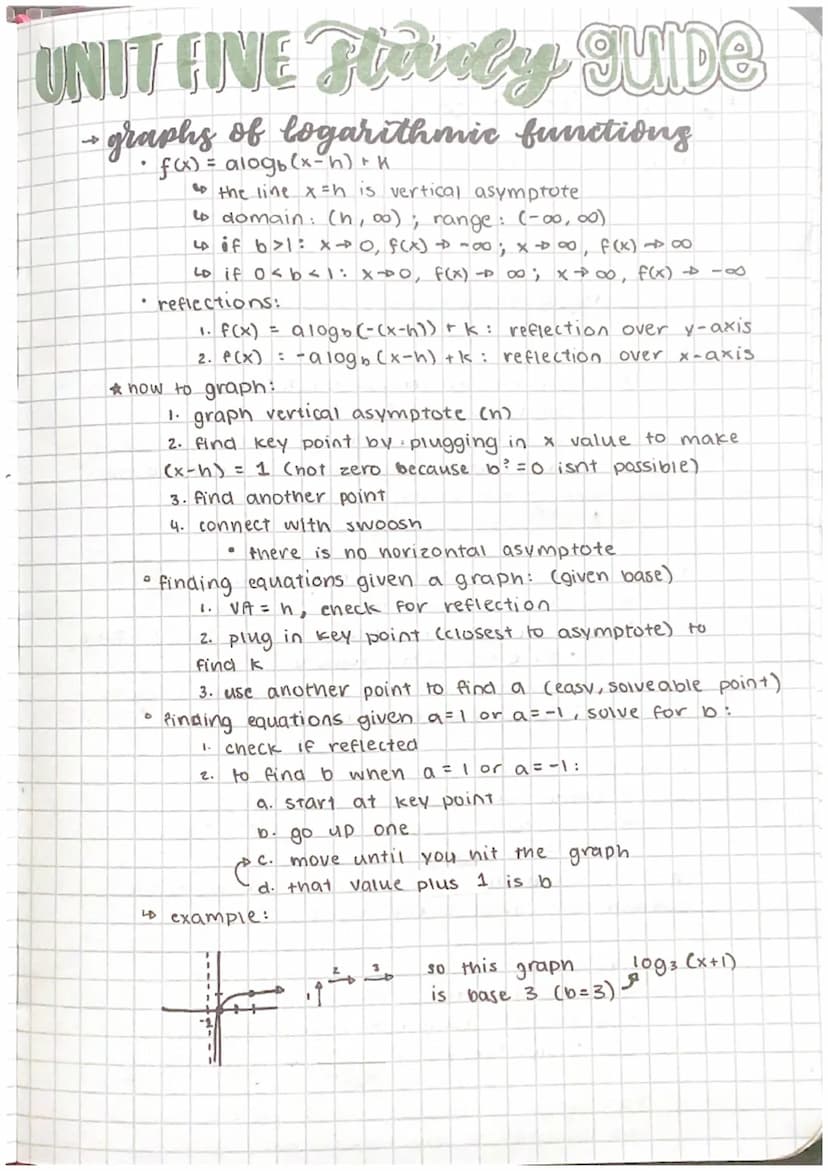 UNIT FIVE study GUIDE
→ graphs of logarithmic functions
• f(x) = alog_b(x-h) + K
↳ the line x=h is vertical asymptote
↳ domain: (h, ∞) ; range: (-∞, ∞)
↳ if b>1: x→0, f(x)→ -∞; x→∞, f(x)→∞
↳ if 0<b<1: x→0, f(x)→ ∞; x→∞, f(x)→ -∞
• reflections:
1. f(x) = alog_b(-(x-h)) + k: reflection over y-axis
2. f(x) : -alog_b(x-h) +k: reflection over x-axis
★ how to graph:
1. graph vertical asymptote (h)
2. find key point by plugging in x value to make
(x-h) = 1 (not zero because b^? = 0 isnt possible)
3. find another point
4. connect with swoosh
• there is no horizontal asymptote
• finding equations given a graph: (given base)
1. VA = h, check for reflection
2. plug in key point (closest to asymptote) to
find k
3. use another point to find a (easy, solveable point)
• finding equations given a=1 or a=-1, solve for b:
1. check if reflected
2. to find b when a=1 or a=-1:
a. start at key point
b. go up one
c. move until you hit the graph
d. that value plus 1 is b
↳ example:
-1
1↑ 2→ 3→
so this graph log₃(x+1)
is base 3 (b=3)